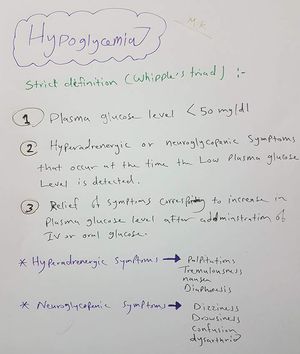 M.K
Hypoglycemia
Strict definition (Whipple's triad) :-
1 Plasma glucose level < 50 mg/dl
2 Hyperadrenergic or neuroglycopenic symptoms
that occur at the time the Low plasma glucose
Level is detected.
3 Relief of symptoms corresponding to increase in
Plasma glucose level after administration of
IV or oral glucose.
* Hyperadrenergic symptoms → Palpitations
Tremulousness
nausea
Diaphoesis
* Neuroglycopenic symptoms → Dizziness
Drowsiness
Confusion
dysarthria